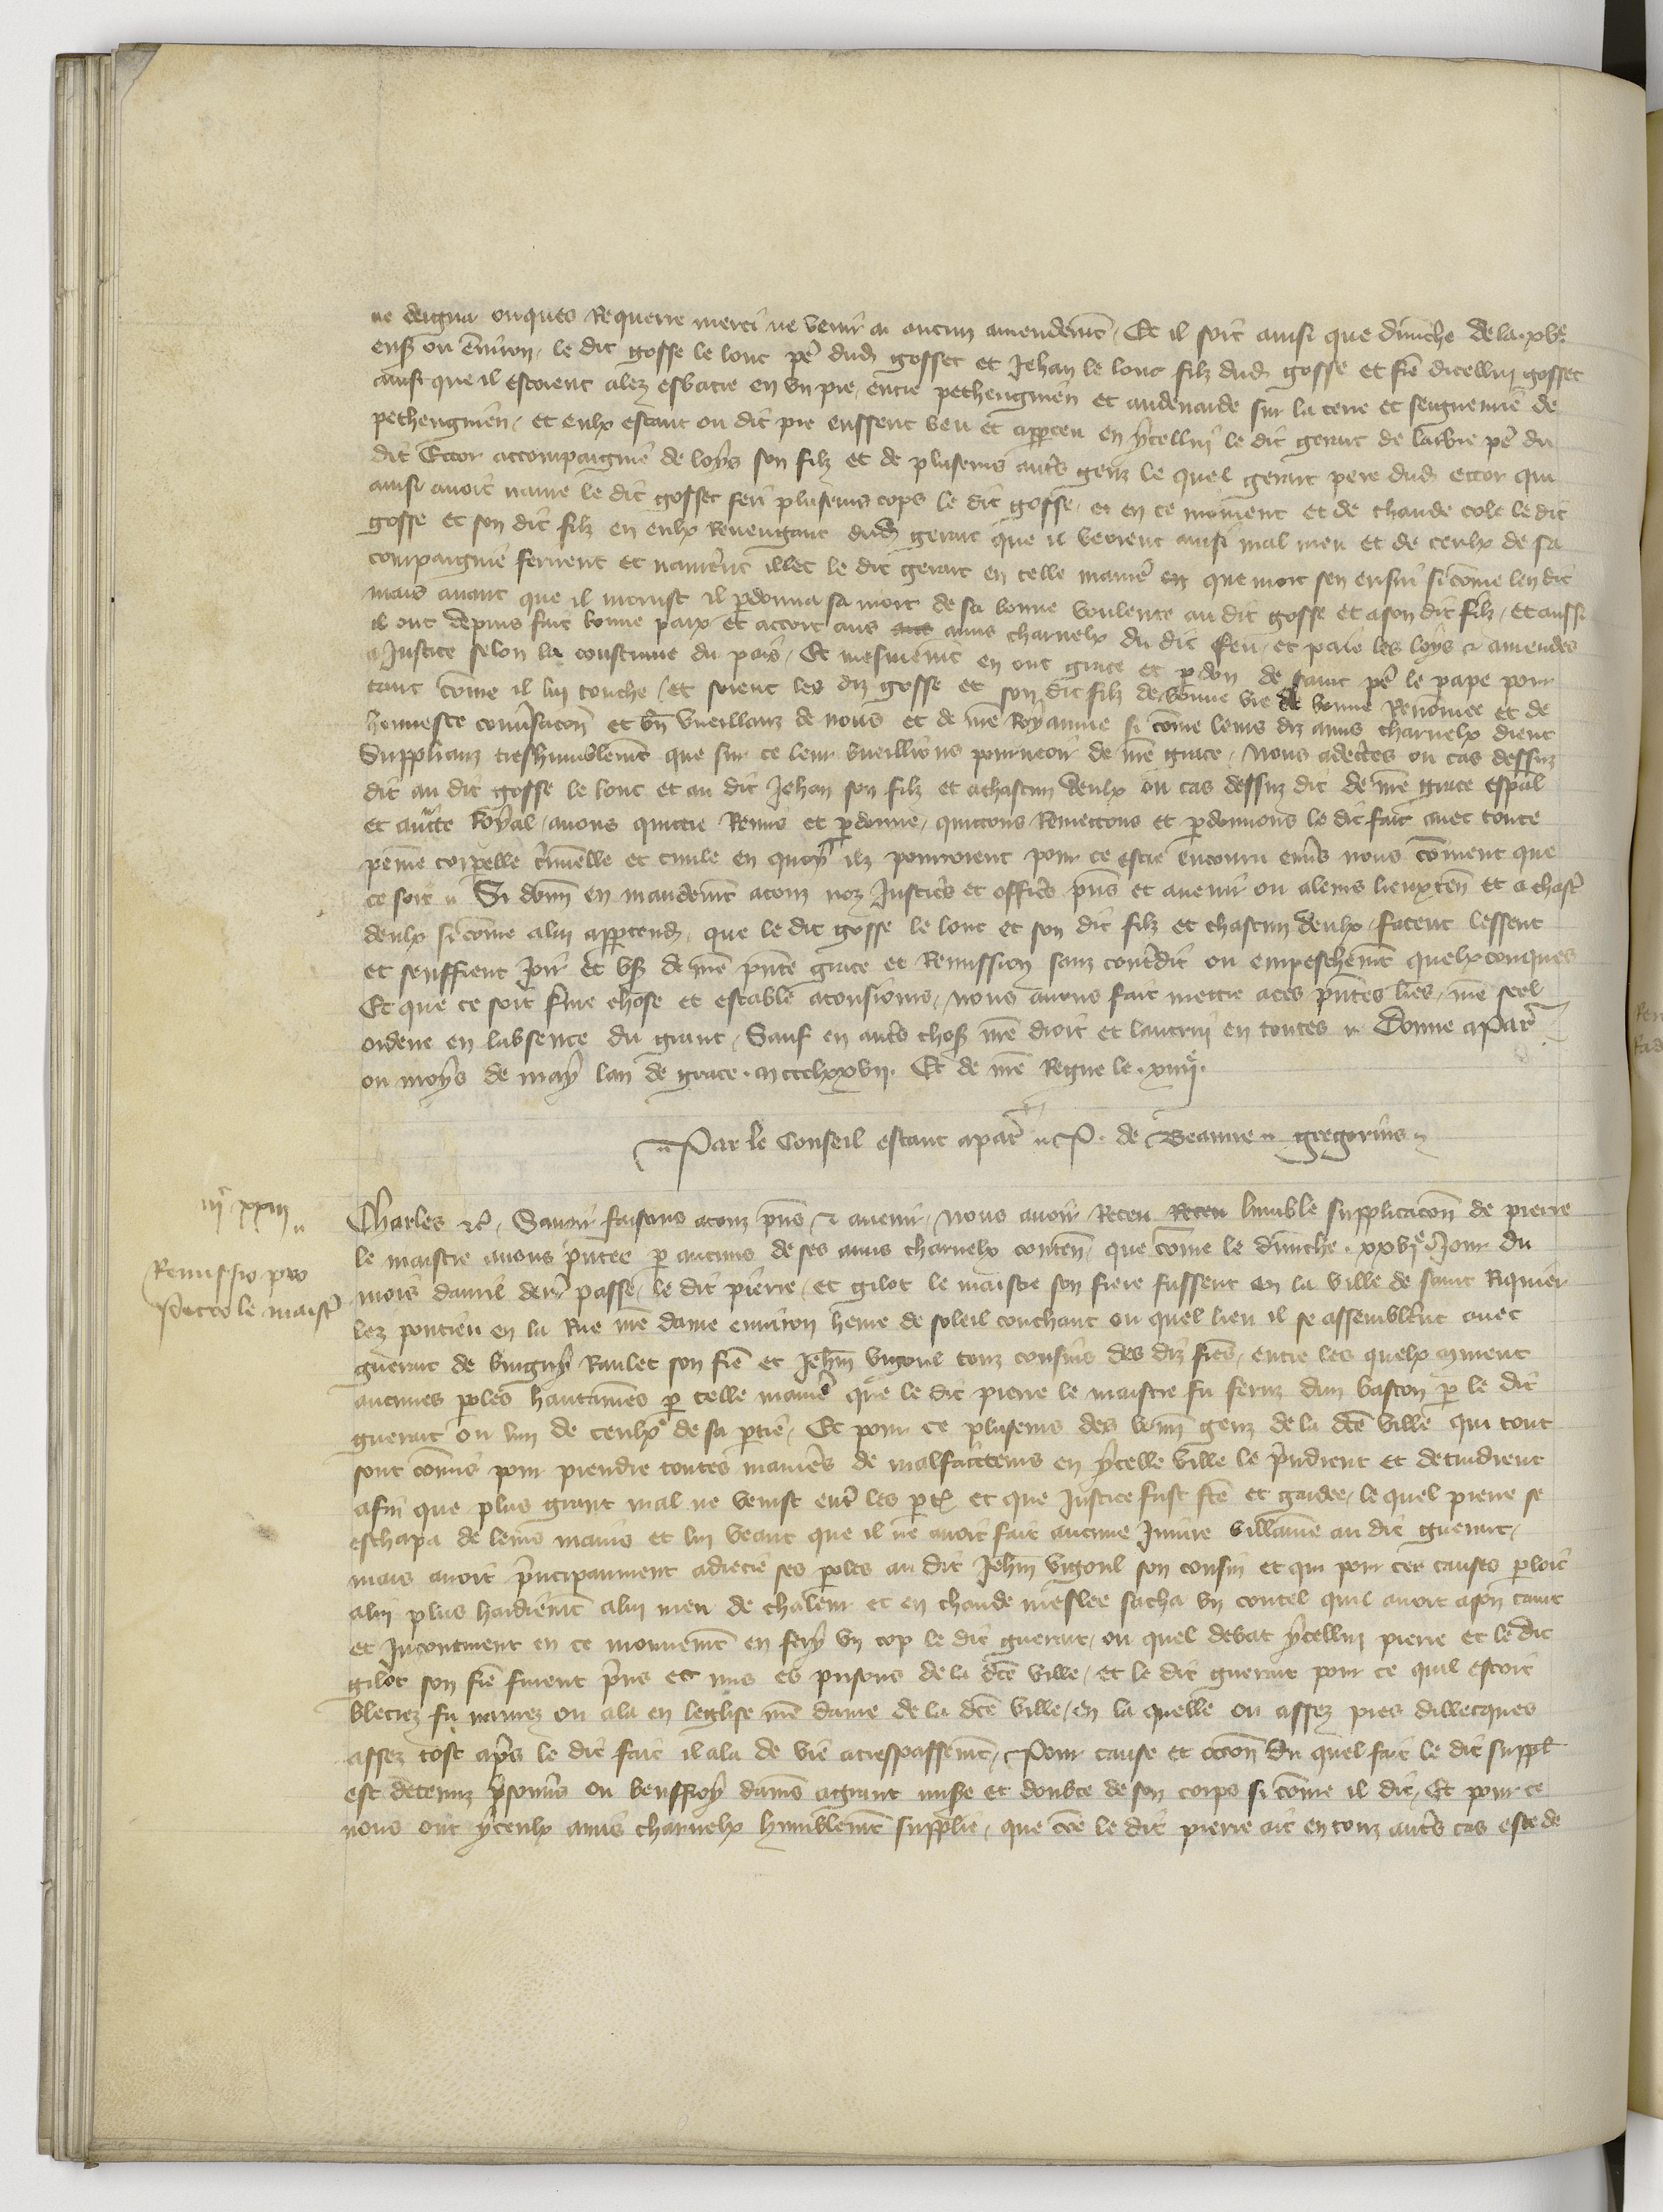 ne deigna onques Requerre merci ne venir a aucun amendemt / Et il soit ainsi que dimenche de la xve
ens ou environ, le dit gosse le lonc pe dud gosset et Jehan le lonc filz dud gosse et fre dicellui gosset
ainsi que il estoient alez esbatre en un pre, entre pethenguien et audenarde sur la terre et seigneurie de
pethenguien / et eulx estant ou dit pre eussent veu et apperceu en ycellui le dit gerart de pe du
dit Ector accompaignie de loys son filz et de pluseurs autres genz le quel gerart pere dud ector qui
ainsi avoit navre le dit gosset feri pluseurs cops le dit gosse, et en ce moment et de chaude cole le dit
gosse et son dit filz en eulx Revengant dud gerart que il veoient ainsi mal meu et de ceulx de sa
compaignie ferirent et navrerent illec le dit gerart en telle maniere que mort sen ensui si come len dit
mais avant que il morust il pdonna sa mort de sa bonne voulente au dit gosse et a son dit filz / Et aussi
il ont depuis fait bonne paix et accort aus amis charnelx du dit feu, et paie les loys et amendes
a Justice selon la coustume du pais / Et mesmemt en ont grace et pdon de saint pe le pape pour
tant come il lui touche / et soient les diz gosse et son dit filz de bonne vie de bonne Renomee et de
honneste conversacon et bn vueillanz de nous et de nre Royaume si come leurs diz amis charnelx dient
Supplianz treshumblemt que sur ce leur vueillions pourveoir de nre grace, Nous adecertes ou cas dessuz
dit au dit gosse le lonc et au dit Jehan son filz et a chascun deulx ou cas dessuz dit de nre grace espal
et aucte Royal, avons quictie Remis et pdonne, quictons Remectons et pdonnons le dit fait avec toute
peine corpelle criminelle et civile en quoy ilz pourroient pour ce estre encouru envers nous coment que
ce soit Si donn en mandemt a touz noz Justiciers et officers pns et avenir ou a leurs lieuxten et a chascun
deulx si come a lui appartend, que le dit gosse le lonc et son dit filz et chascun deulx facent lessent
et seuffrent Joir et us de nre pnte grace et Remission sanz contredit ou empeschemt quelxconques
Et que ce soit ferme chose et estable a tousjours, Nous avons fait mettre a ces pntes lres, nre seel
ordene en labsence du grant, Sauf en autres choses nre droit et lautrui en toutes Donne a Par
ou moys de may lan de grace m ccc lxxvii Et de nre Regne le xiiiie
Par le Conseil estant a par P. de Beaune gregorius
iiic xxiii
Charles etc Savoir faisons a touz pns et avenir, Nous avoir Receu Receu lumble supplicacon de pierre
le maistre a nous pntee p aucuns de ses amis charnelx conten, que come le dimenche xxvie Jour du
Remissio pro
Petro le maistre
mois davril derr passe, le dit pierre, et gilot le maistre son frere fussent en la ville de saint Riquier
lez pontieu en la Rue nre dame environ heure de soleil couchant ou quel lieu il se assemblerent avec
guerart de Raulet son fre et Jehan vigoul touz cousins des diz freres, entre les quelx
aucunes poles hautaines p telle maniere que le dit pierre le maistre fu feruz dun baston p le dit
guerart ou lun de ceulx de sa ptie, Et pour ce pluseurs des bonnes genz de la dce ville qui tout
sont comis pour prendre toutes manieres de malfaicteurs en ycelle ville le prindrent et detindrent
afin que plus grant mal ne venist entre les pt et que Justice fust fte et gardee, le quel pierre se
eschapa de leurs mains et lui veant que il ne avoit fait aucune Injure villainie au dit guerart,
mais avoit principaument adrecie ses poles au dit Jehan vigoul son cousin et qui pour cer causes ploit
a lui plus hardiemt a lui meu de chaleur et en chaude meslee sacha un coutel quil avoit a son
et Incontinent en ce mouvemt en fery un cop le dit guerart, ou quel debat ycellui pierre et le dit
gilot son fre furent prins et mis es prisons de la dce ville, et le dit guerart pour ce quil estoit
bleciez fu menez ou ala en leglise nre dame de la dce ville, en la quelle ou assez pres dillecques
assez tost apres le dit fait il ala de vie a trespassemt, Pour cause et occon du quel fait le dit suppl
est detenuz prisonnier ou beuffroy damiens a grant misere et doubte de son corps si come il dit, Et pour ce
nous ont yceulx amis charnelx humblemt supplie, que come le dit pierre ait en touz autres cas este de